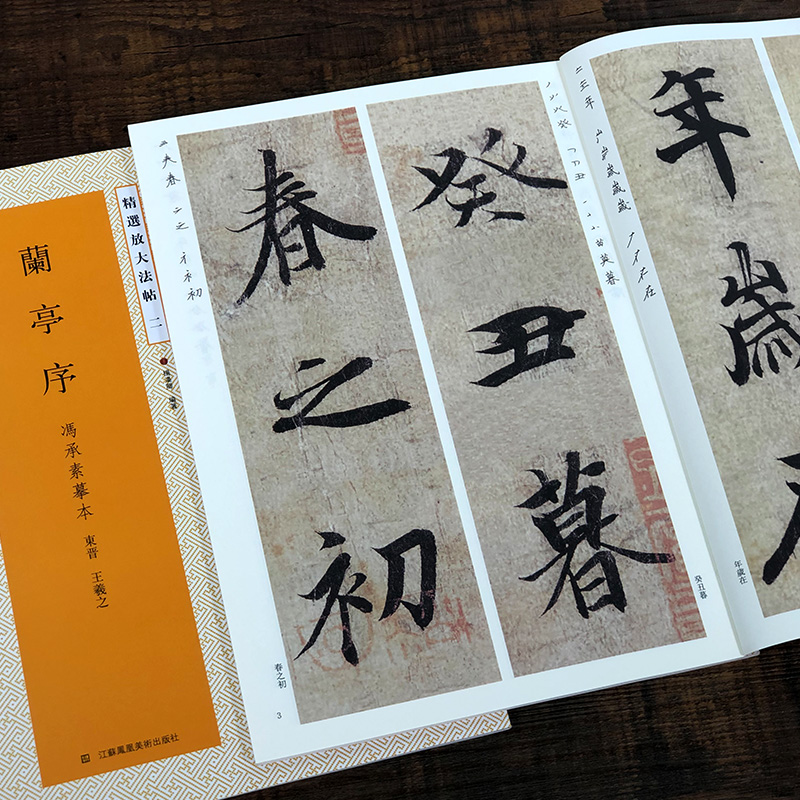 精選放大法帖 二
蘭亭序
馮承素摹本
東晉 王羲之
編著
江蘇鳳凰美術出版社
年歲
年歲在
癸丑暮
癸丑暮
春之初
春之初
3